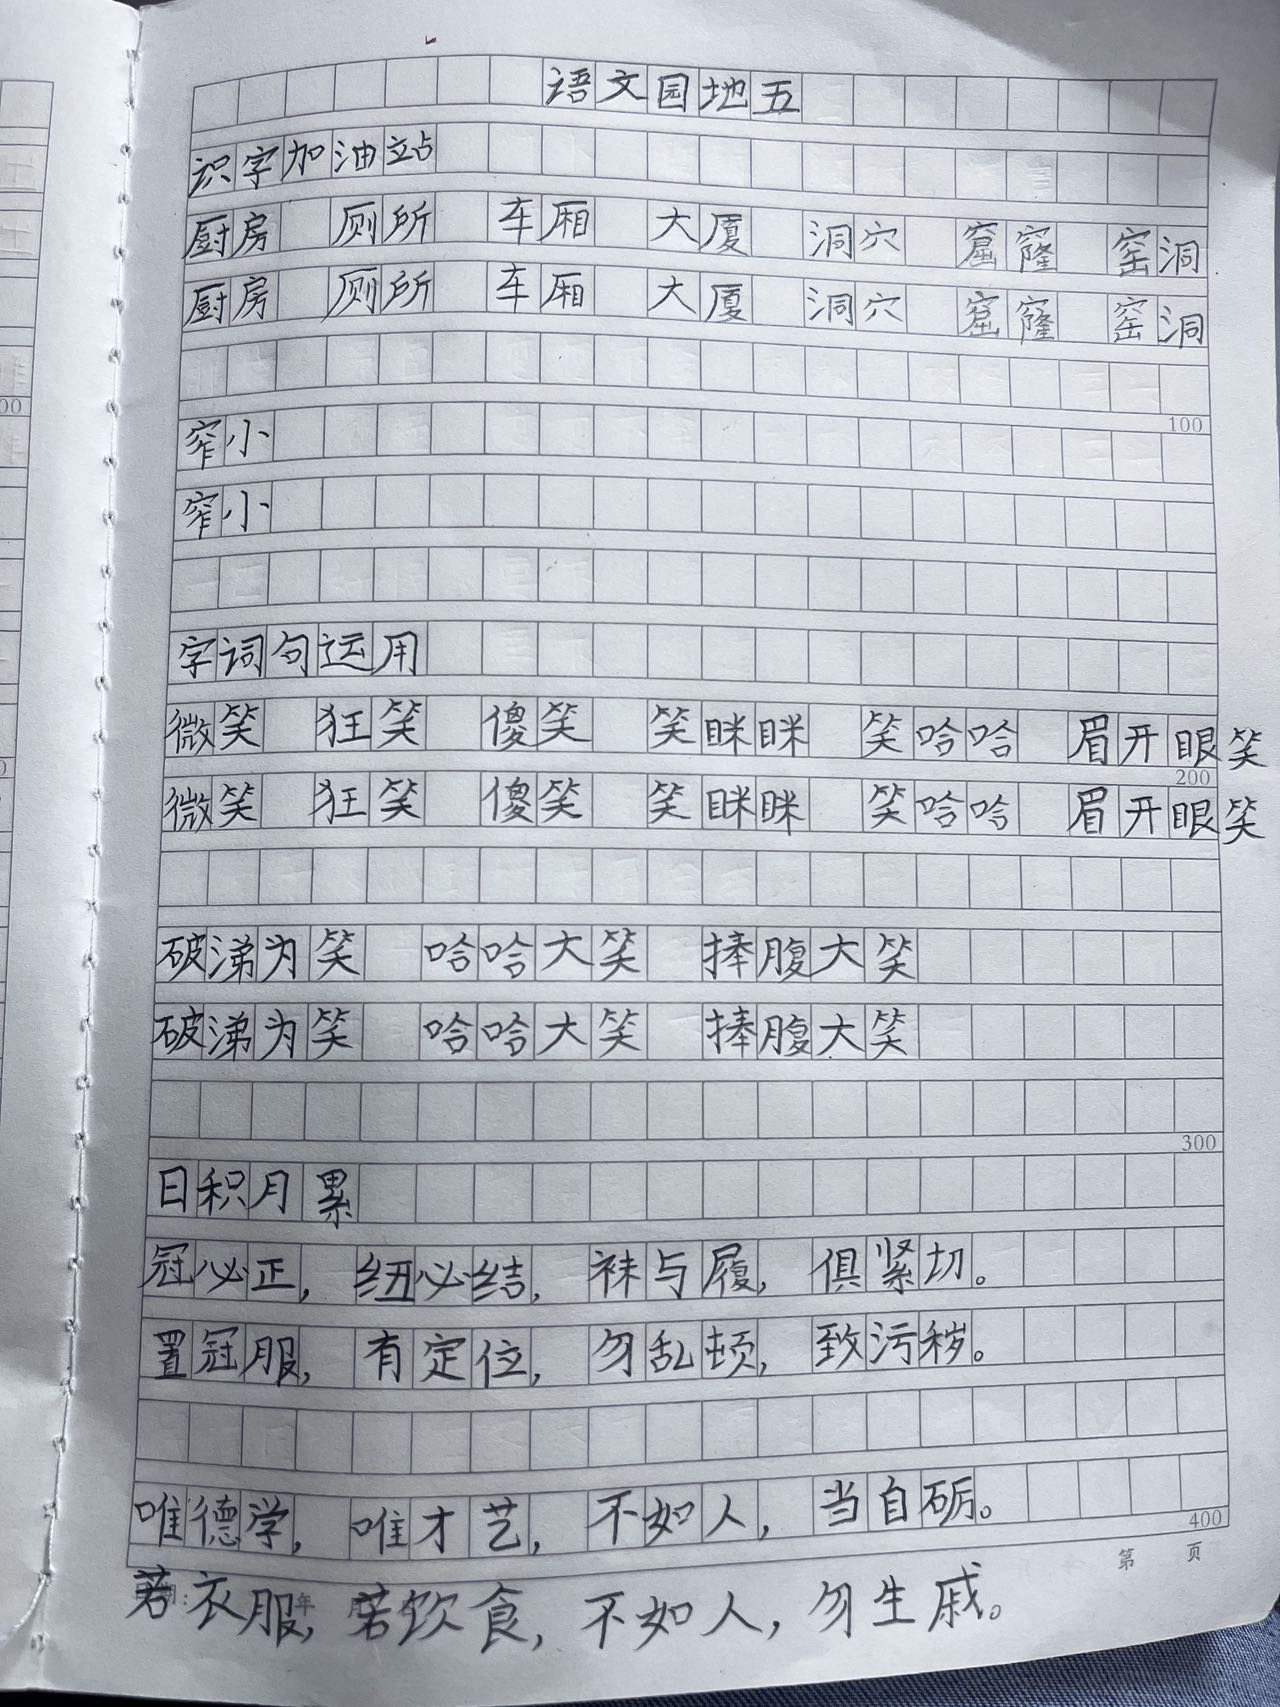 语文园地五
识字加油站
厨房 厕所 车厢 大厦 洞穴 窟窿 窑洞
厨房 厕所 车厢 大厦 洞穴 窟窿 窑洞
100
窄小
窄小
字词句运用
微笑 狂笑 傻笑 笑眯眯 笑哈哈 眉开眼笑
200
微笑 狂笑 傻笑 笑眯眯 笑哈哈 眉开眼笑
破涕为笑 哈哈大笑 捧腹大笑
破涕为笑 哈哈大笑 捧腹大笑
300
日积月累
冠必正，纽必结，袜与履，俱紧切。
置冠服，有定位，勿乱顿，致污秽。
唯德学，唯才艺，不如人，当自砺。
400
第 页
若衣服，若饮食，不如人，勿生戚。